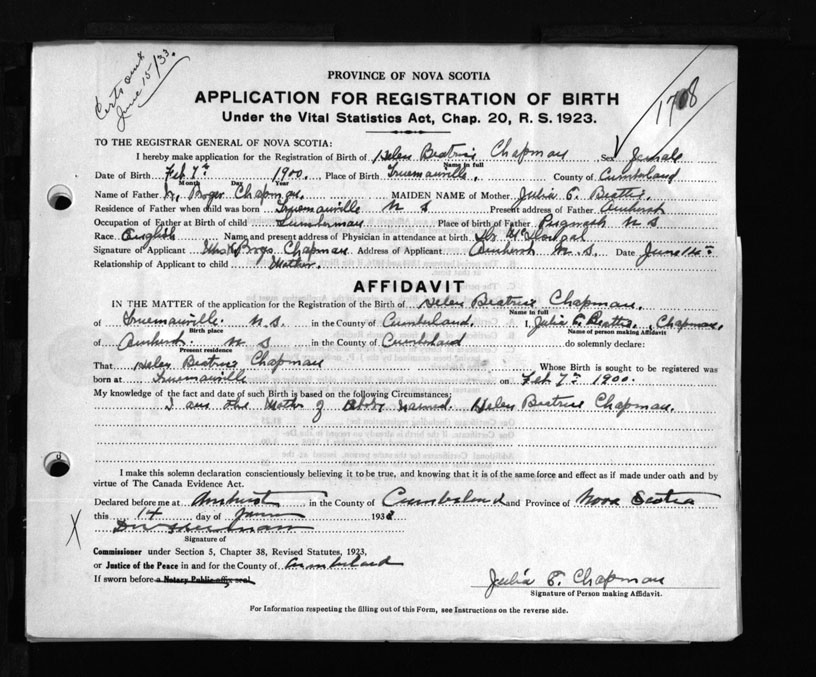 Certs sent
June 15/33.
PROVINCE OF NOVA SCOTIA
APPLICATION FOR REGISTRATION OF BIRTH
1708
Under the Vital Statistics Act, Chap. 20, R. S. 1923.
TO THE REGISTRAR GENERAL OF NOVA SCOTIA:
I hereby make application for the Registration of Birth of Helen Beatrice Chapman Sex female
Name in full
Date of Birth Feb 7th 1900. Place of Birth Truemanville. County of Cumberland
Month Day Year
Name of Father Roger Chapman. MAIDEN NAME of Mother Julia E. Beattie.
Residence of Father when child was born Truemanville N S Present address of Father Amherst
Occupation of Father at Birth of child Lumberman Place of birth of Father Pugwash N S
Race English Name and present address of Physician in attendance at birth Dr.
Signature of Applicant Chapman Address of Applicant Amherst N. S. Date June 14th
Relationship of Applicant to child Mother.
AFFIDAVIT
IN THE MATTER of the application for the Registration of the Birth of Helen Beatrice Chapman.
Name in full
of Truemanville. N. S. in the County of Cumberland. I, Julia E. Beattie, Chapman.
Birth place Name of person making Affidavit
of Amherst N S in the County of Cumberland do solemnly declare:
Present residence
That Helen Beatrice Chapman Whose Birth is sought to be registered was
born at Truemanville on Feb 7th 1900.
My knowledge of the fact and date of such Birth is based on the following Circumstances:
I am the Mother of above named. Helen Beatrice Chapman.
I make this solemn declaration conscientiously believing it to be true, and knowing that it is of the same force and effect as if made under oath and by
virtue of The Canada Evidence Act.
Declared before me at Amherst in the County of Cumberland and Province of Nova Scotia
this 14 day of June 193
Signature of
X
Commissioner under Section 5, Chapter 38, Revised Statutes, 1923,
or Justice of the Peace in and for the County of Cumberland
If sworn before a Notary Public affix seal
Julia E. Chapman
Signature of Person making Affidavit.
For Information respecting the filling out of this Form, see Instructions on the reverse side.